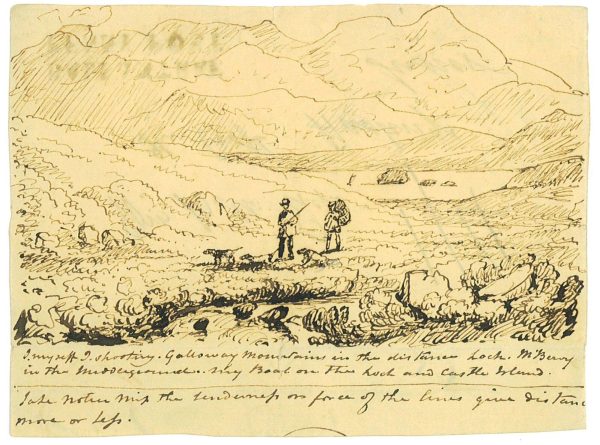 I myself I shooting. Galloway Mountain in the distance Loch.
in the Middleground. my Boat on the Loch and Castle Island.
Take Notice the tenderness or force of the lines give distance
more or less.